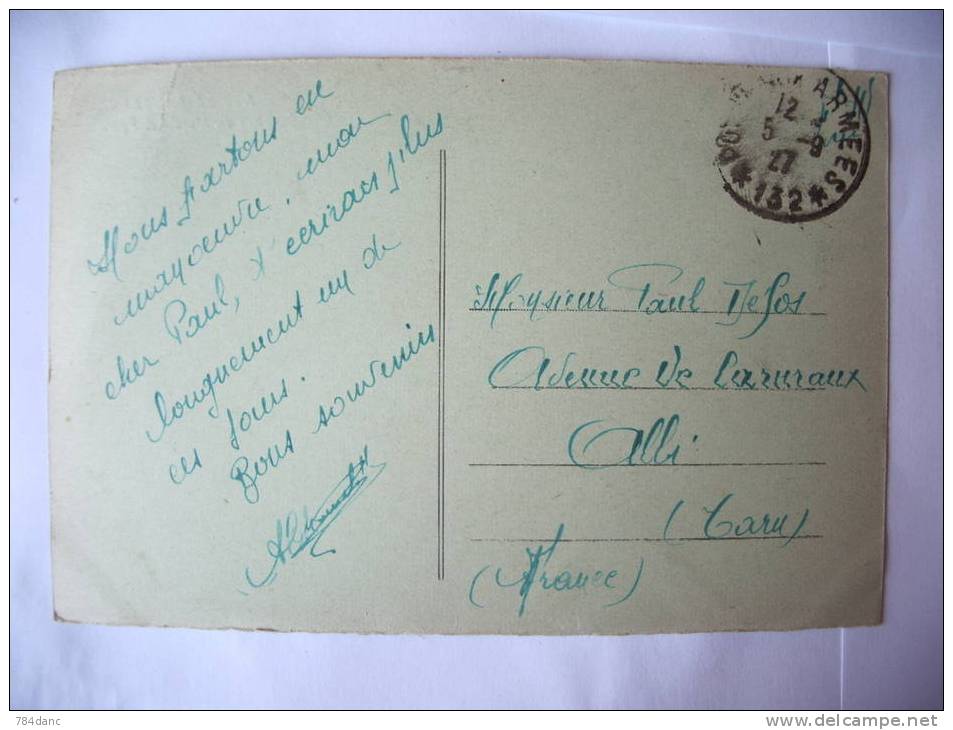 Nous partons en
manoeuvre. mon
cher Paul, t'écrirais plus
longuement un de
ces jours.
Bons souvenirs
POSTE AUX ARMEES
12
5 - 9
27
*132*
Monsieur Paul Defos
Avenue de
Albi
(Tarn)
(France)
784danc
delcampe.net